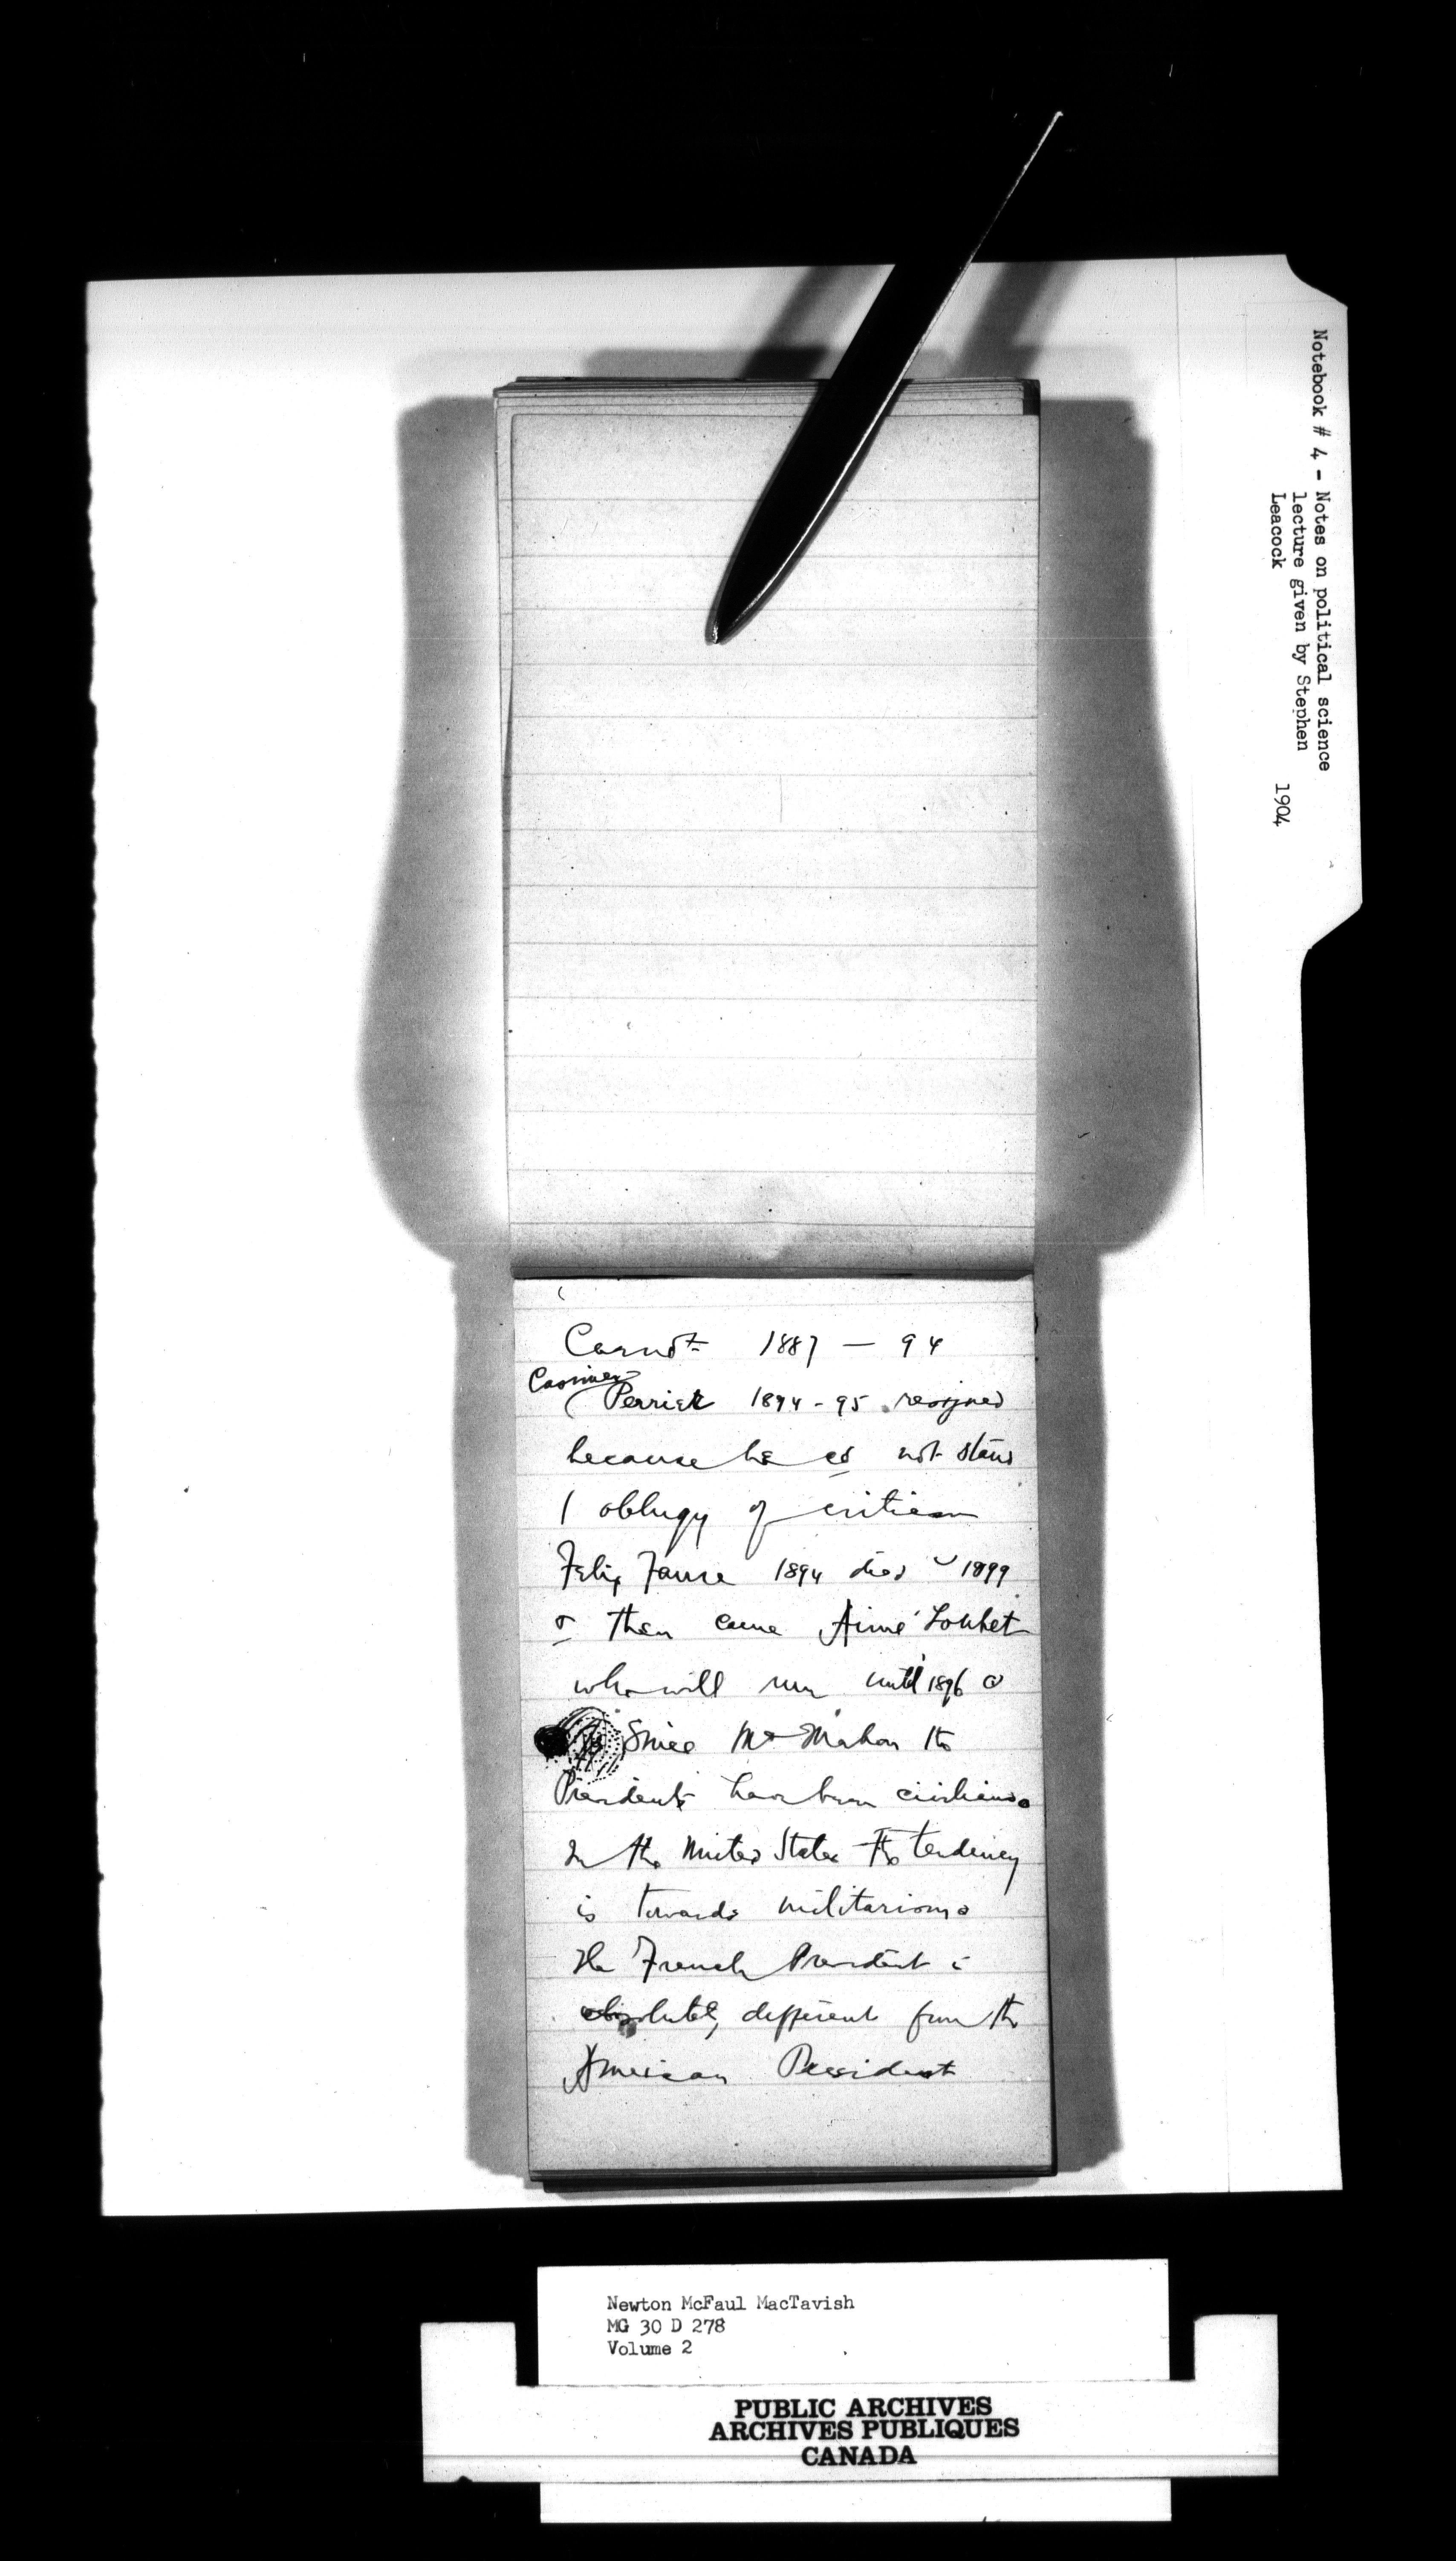 Notebook # 4 - Notes on political science
lecture given by Stephen
Leacock 1904
Carnot 1887 — 94
Casimir
Perrier 1894 - 95 resigned
because he cd not stand
/ oblugy of criticism
Felix Faure 1894 died 1899
& then came Aimé Loubet
who will run until 1896
Since McMahon the
Presidents have been civilians.
In the United States the tendency
is towards militarism.
The French President is
absolutely different from the
American President
Newton McFaul MacTavish
MG 30 D 278
Volume 2
PUBLIC ARCHIVES
ARCHIVES PUBLIQUES
CANADA